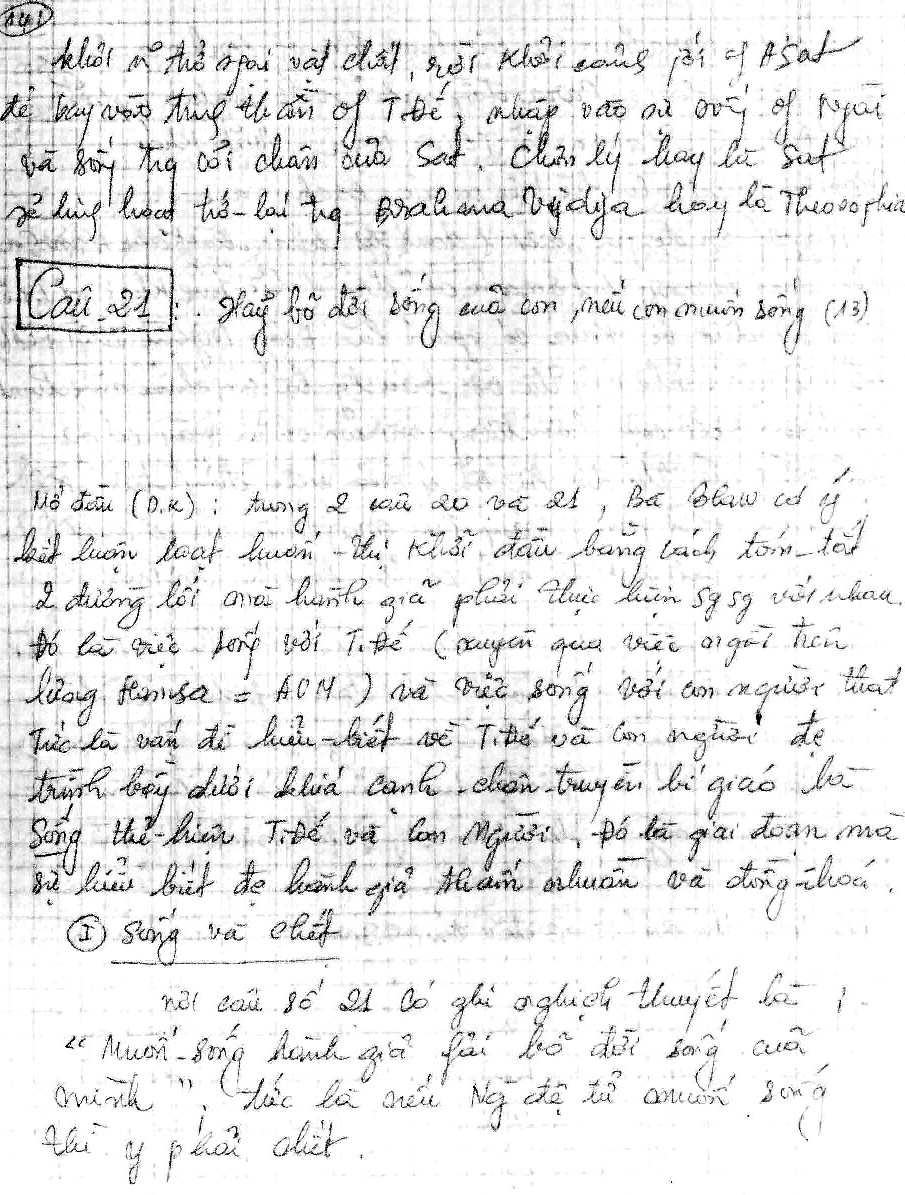 141
khỏi sự thở ngại vật chất, rời khỏi cảnh giới of ASat
để bay vào từng thần of T.Đế, nhập vào sự sống of Ngài
và sống trg cõi chân của Sat. Chân lý hay là Sat
sẽ linh hoạt trở-lại trg Brahma Vidya hay là Theosophia
Câu 21 : Hãy bỏ đời sống của con, nếu con muốn sống (13)
Mở đầu (D.K) : trong 2 câu 20 và 21, Bà Blaw có ý
kết luận loạt huấn-thị khởi đầu bằng cách tóm-tắt
2 đường lối mà hành giả phải thực hiện sg sg với nhau.
Đó là việc sống với T.Đế (xuyên qua việc ngồi trên
lưng Hamsa = AUM) và việc sống với con người thật
Tức là vấn đề hiểu-biết về T.Đế và con người đc
trình bày dưới khiá cạnh chân truyền bí giáo là
Sống thể-hiện T.Đế và Con Người. Đó là giai đoạn mà
sự hiểu biết đc hành giả thấm nhuần và đồng-hoá.
I Sống và chết
nơi câu số 21 Có ghi nghịch thuyết là ;
"Muốn-sống hành giả fải bỏ đời sống của
mình". tức là nếu Ng đệ tử muốn sống
thì y phải chết.